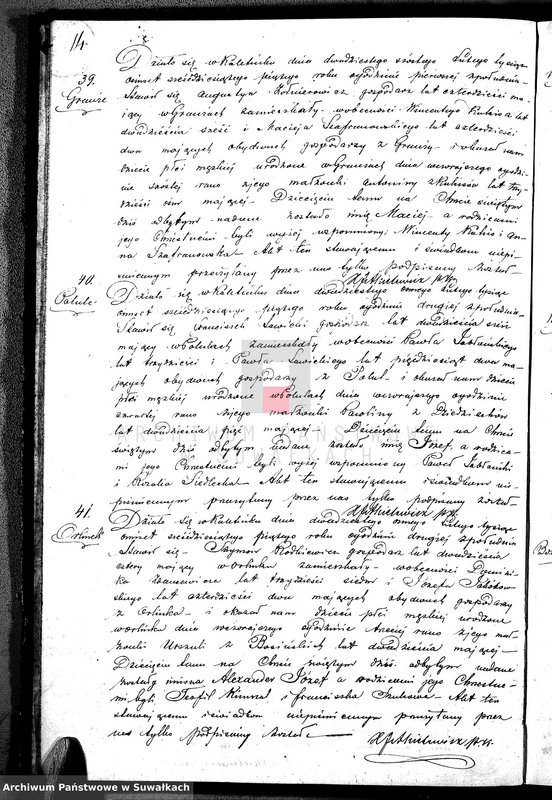 14.
39.
Granice
Działo się w Kaletniku dnia dwudziestego szóstego Lutego tysiąc
ośmset sześćdziesiątego piątego roku o godzinie pierwszej z południa
Stawił się Augustyn gospodarz lat czterdzieści ma-
jący w Granicach zamieszkały w obecności Wincentego lat
dwadzieścia sześć i Macieja Szafranowskiego lat czterdzieści
dwa mających obydwóch gospodarzy z Granicy i okazał nam
dziecię płci męzkiej urodzone w Granicach dnia wczorajszego o godzi-
nie szóstej rano z jego małżonki Antoniny lat trzy-
dzieści mającej Dziecięciu temu na Chrzcie świętym
dziś odbytym nadane zostało imię Maciej a rodzicami
jego Chrzestnemi byli wyżej wspomniony Wincenty i An-
na Szafranowska Akt ten stawającemu i świadkom niepi-
śmiennym przeczytany przez nas tylko podpisany został
40.
Działo się w Kaletniku dnia dwudziestego ósmego Lutego tysiąc
ośmset sześćdziesiątego piątego roku o godzinie drugiej z południa
Stawił się Franciszek Sawicki gospodarz lat dwadzieścia sześć
mający zamieszkały w obecności Pawła
lat trzydzieści i Pawła Sawickiego lat pięćdziesiąt dwa ma-
jących obydwóch gospodarzy z i okazał nam dziecię
płci męzkiej urodzone dnia wczorajszego o godzinie
czwartej rano z jego małżonki Karoliny z
lat dwadzieścia pięć mającej Dziecięciu temu na Chrzcie
świętym dziś odbytym nadane zostało imię Józef, a rodzica-
mi jego Chrzestnemi byli wyżej wspomniony Paweł
i Rozalia Siedlecka Akt ten stawającemu i świadkom nie-
piśmiennym przeczytany przez nas tylko podpisany został
41.
Orlinek
Działo się w Kaletniku dnia dwudziestego ósmego Lutego tysiąc
ośmset sześćdziesiątego piątego roku o godzinie drugiej z południa
Stawił się Szymon gospodarz lat dwadzieścia
cztery mający w Orlinku zamieszkały w obecności Domini-
ka lat trzydzieści siedm i Józefa
lat czterdzieści dwa mających obydwóch gospodarzy
z Orlinka i okazał nam dziecię płci męzkiej urodzone
w Orlinku dnia wczorajszego o godzinie trzeciej rano z jego mał-
żonki Urszuli z lat dwadzieścia mającej
Dziecięciu temu na Chrzcie świętym dziś odbytym nadane
zostały imiona Alexander Józef a rodzicami jego Chrzestne-
mi byli Teofil i Franciszka Akt ten
stawającemu i świadkom niepiśmiennym przeczytany przez
nas tylko podpisany został
ARCHIWUM PAŃSTWOWE
W SUWAŁKACH
Archiwum Państwowe w Suwałkach